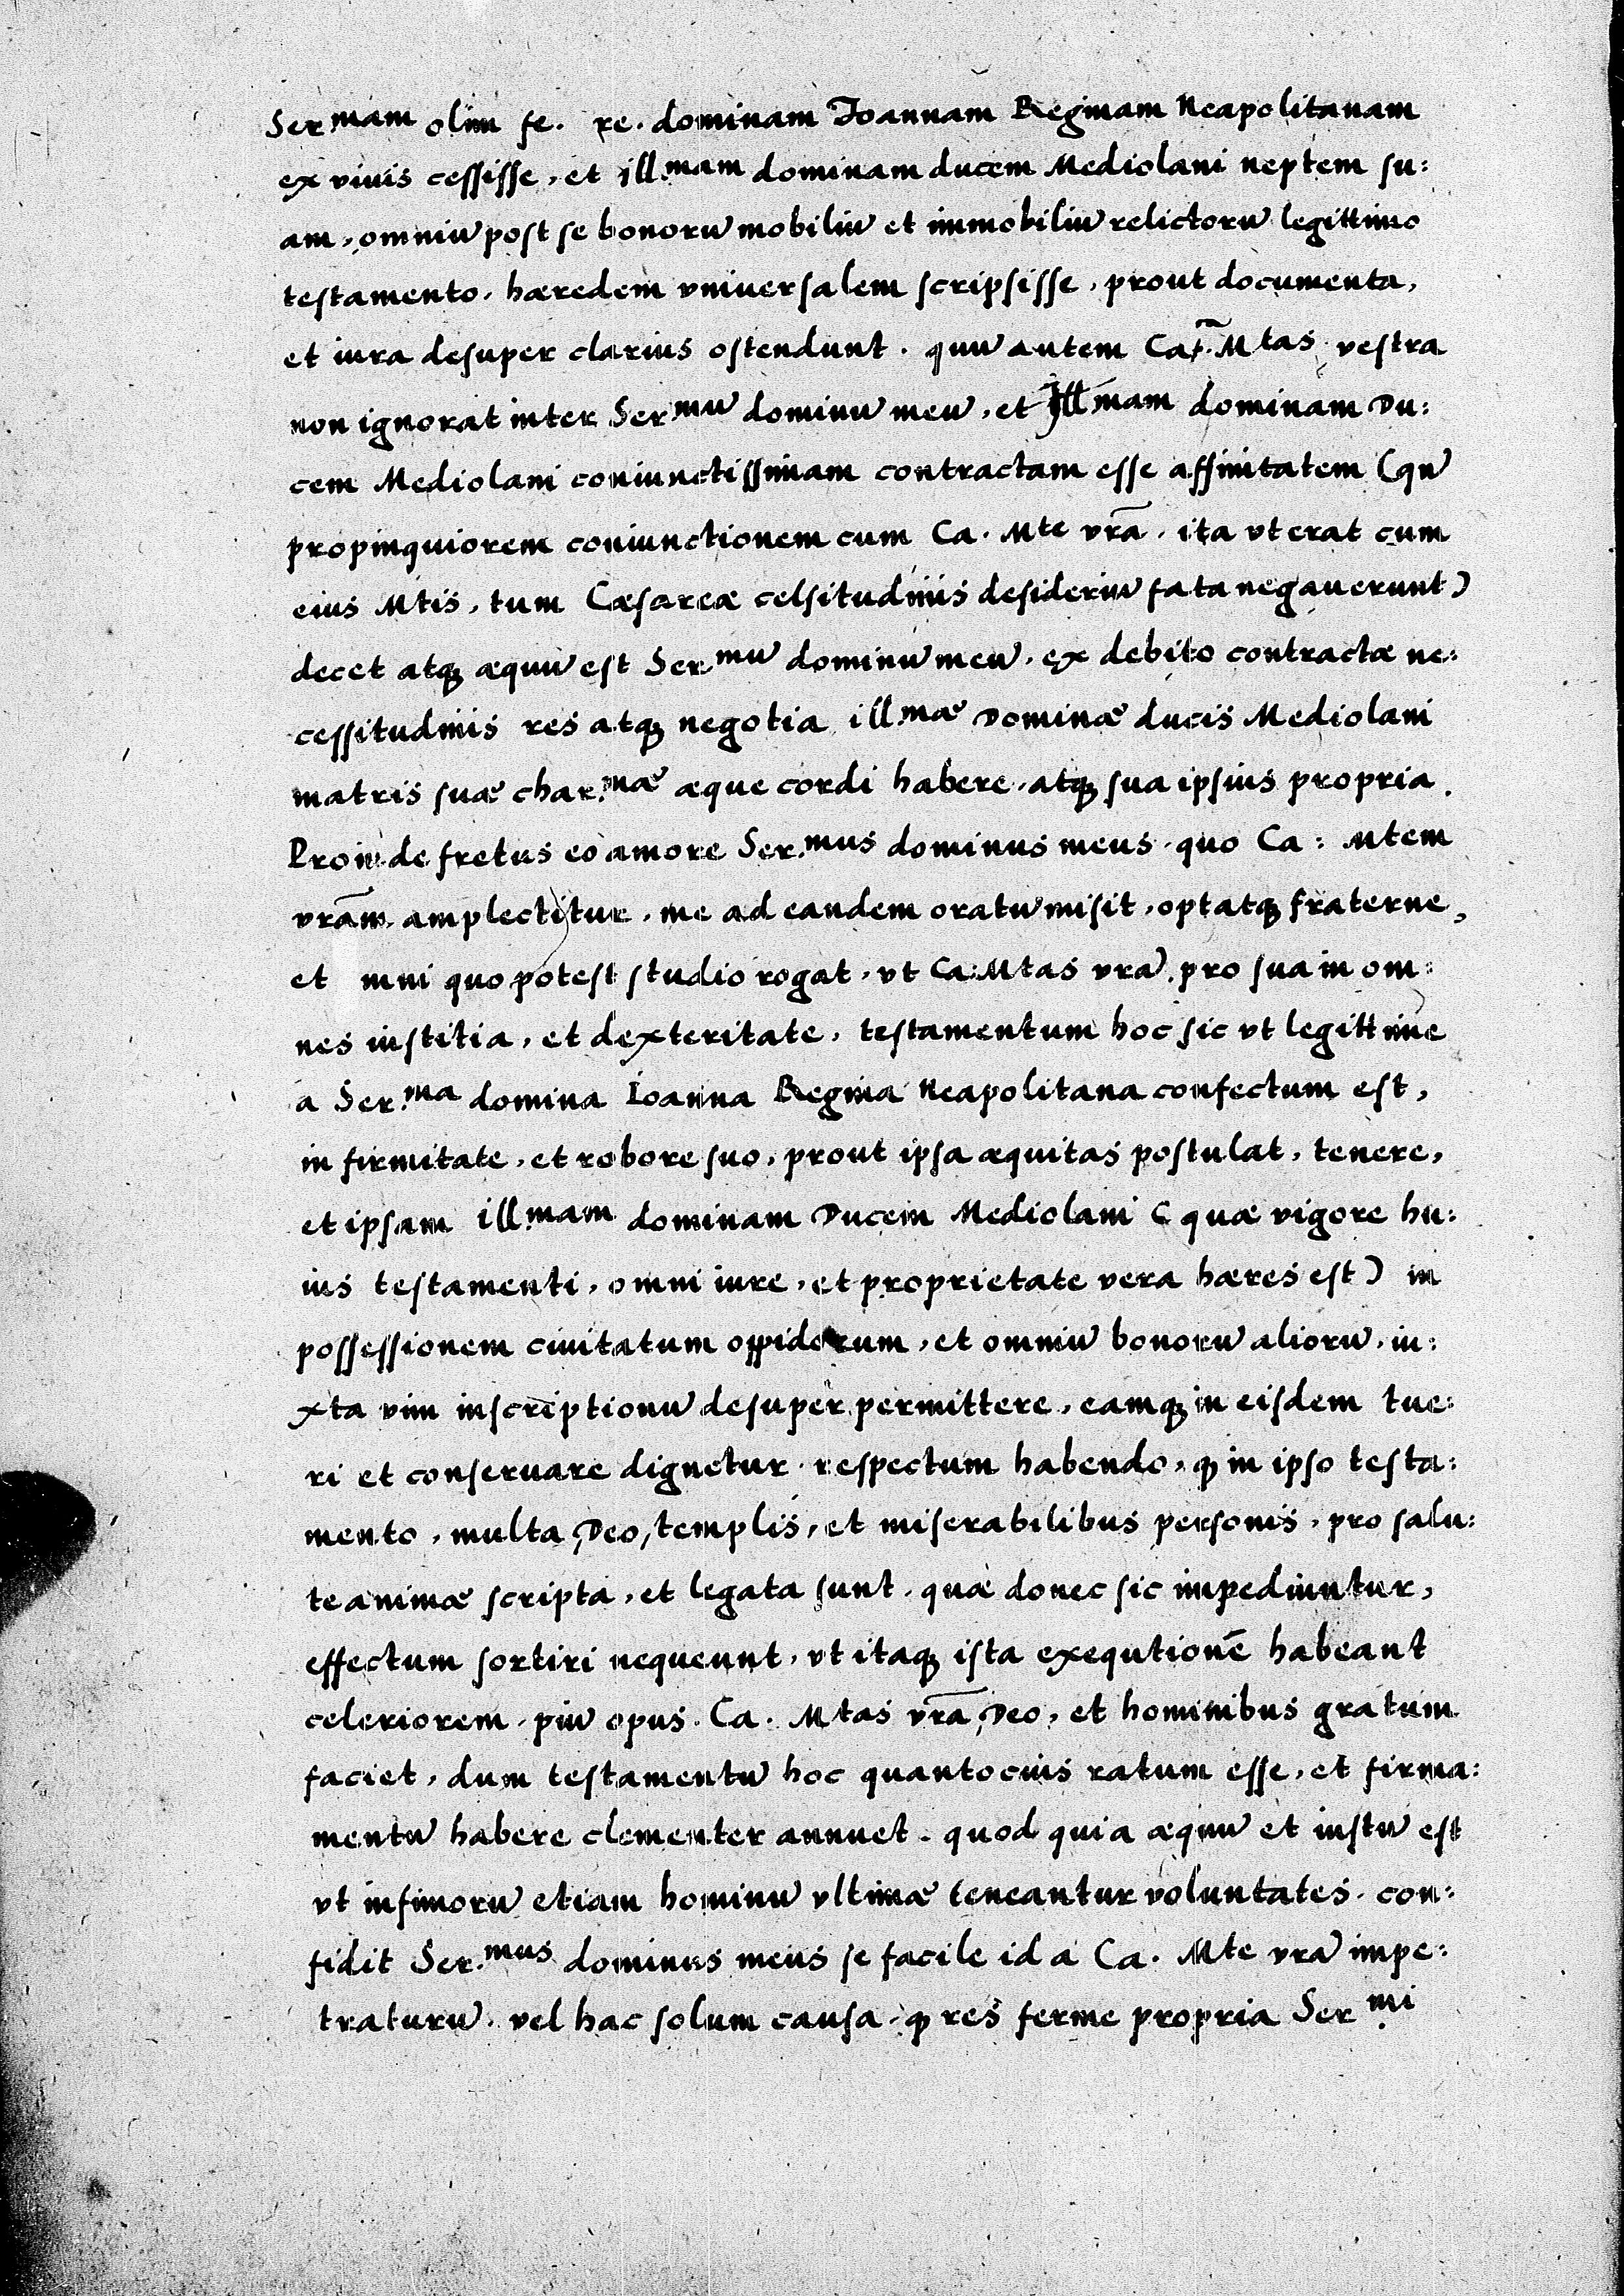 Ser.mam olim fe. re. dominam Ioannam Reginam Neapolitanam
ex viuis cessisse, et ill.mam dominam ducem Mediolani neptem su:
am, omniũ post se bonorũ mobiliũ et immobiliũ relictorũ legittimo
testamento, hæredem vniuersalem scripsisse, prout documenta,
et iura desuper clarius ostendunt. quũ autem Ca. Mtas vestra
non ignorat inter Ser.mũ dominũ meũ, et Ill.mam dominam Du:
cem Mediolani coniunctissimam contractam esse affinitatem (qũ
propinquiorem coniunctionem cum Ca. Mte vrã. ita vt erat cum
eius Mtis, tum Cæsareæ celsitudinis desideriũ fata negauerunt)
decet atq; æquũ est Ser.mũ dominũ meũ, ex debito contractæ ne:
cessitudinis res atq; negotia ill.mæ Dominæ ducis Mediolani
matris suæ char.mæ æque cordi habere, atq; sua ipsius propria.
Proinde fretus eo amore Ser.mus dominus meus, quo Ca: Mtem
vrãm, amplectitur, me ad eandem oratũ misit, optatq; fraterne,
et mni quo potest studio rogat, vt Ca: Mtas vrã, pro sua in om:
nes iustitia, et dexteritate, testamentum hoc sic vt legittime
a Ser.ma domina Ioanna Regina Neapolitana confectum est,
in firmitate, et robore suo, prout ipsa æquitas postulat, tenere,
et ipsam ill.mam dominam Ducem Mediolani (quæ vigore hu:
ius testamenti, omni iure, et proprietate vera hæres est) in
possessionem ciuitatum oppidorum, et omniũ bonorũ aliorũ, iu:
xta vim inscriptionũ desuper permittere, eamq; in eisdem tue:
ri et conseruare dignetur respectum habendo, q in ipso testa:
mento, multa, Deo, templis, et miserabilibus personis, pro salu:
te animæ scripta, et legata sunt, quæ donec sic impediuntur,
effectum sortiri nequeunt, vt itaq; ista exequtionẽ habeant
celeriorem, piũ opus. Ca. Mtas vrã, Deo, et hominibus gratum
faciet, dum testamentũ hoc quantocius ratum esse, et firma:
mentũ habere clementer annuet. quod quia æquũ et iustũ est
vt infimorũ etiam hominũ vltimæ teneantur voluntates, con:
fidit Ser.mus dominus meus se facile id a Ca. Mte vrã impe:
traturũ, vel hac solum causa, q res ferme propria Ser.mi